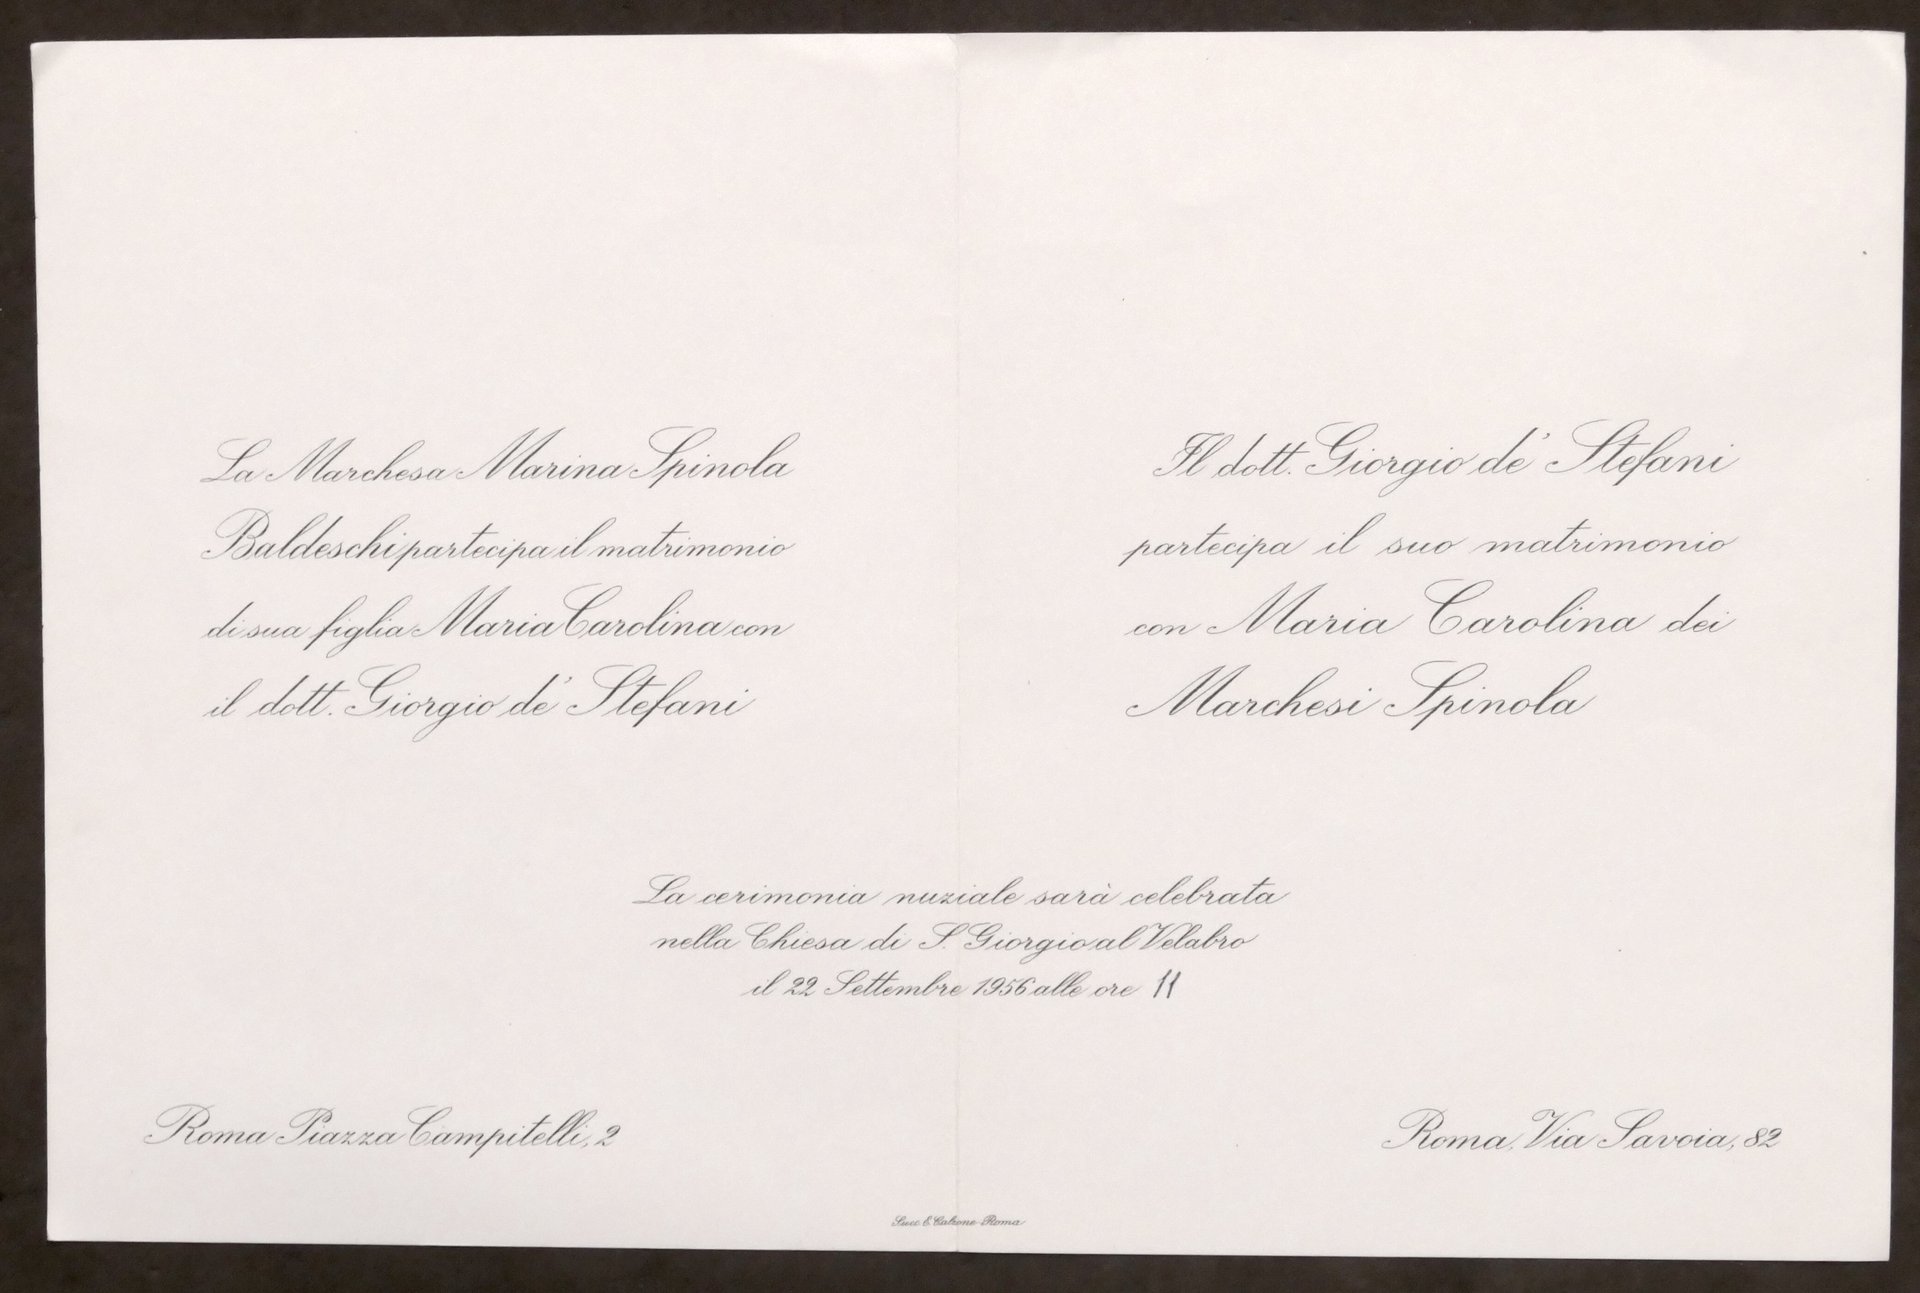 La Marchesa Marina Spinola
Baldeschi partecipa il matrimonio
di sua figlia Maria Carolina con
il dott. Giorgio de' Stefani
Il dott. Giorgio de' Stefani
partecipa il suo matrimonio
con Maria Carolina dei
Marchesi Spinola
La cerimonia nuziale sarà celebrata
nella Chiesa di S. Giorgio al Velabro
il 22 Settembre 1956 alle ore 11
Roma Piazza Campitelli, 2
Roma, Via Savoia, 82
Succ. E. Calzone - Roma